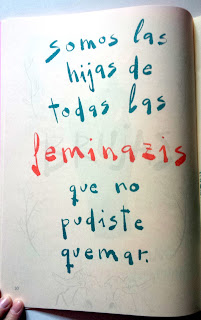 somos las
hijas de
todas las
feminazis
que no
pudiste
quemar.